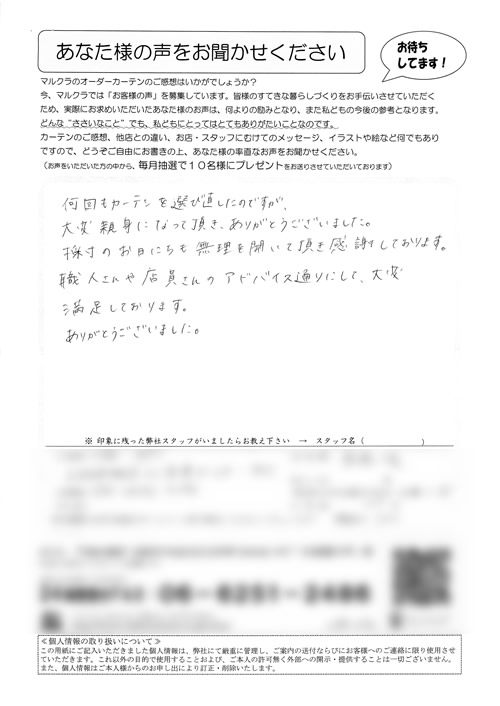 あなた様の声をお聞かせください
お待ち
してます！
マルクラのオーダーカーテンのご感想はいかがでしょうか？
今、マルクラでは「お客様の声」を募集しています。皆様のすてきな暮らしづくりをお手伝いさせていただく
ため、実際にお求めいただいたあなた様のお声は、何よりの励みとなり、また私どもの今後の参考となります。
どんな“ささいなこと”でも、私どもにとってはとてもありがたいことなのです。
カーテンのご感想、他店との違い、お店・スタッフにむけてのメッセージ、イラストや絵など何でもあり
ですので、どうぞご自由にお書きの上、あなた様の率直なお声をお聞かせください。
（お声をいただいた方の中から、毎月抽選で１０名様にプレゼントをお送りさせていただいております）
何回もカーテンを選び直したのですが、
大変親身になって頂き、ありがとうございました。
採寸のお日にちも無理を聞いて頂き感謝しております。
職人さんや店員さんのアドバイス通りにして、大変
満足しております。
ありがとうございました。
※ 印象に残った弊社スタッフがいましたらお教え下さい → スタッフ名（ ）
06-6251-2486
≪個人情報の取り扱いについて≫
この用紙にご記入いただきました個人情報は、弊社にて厳重に管理し、ご案内の送付ならびにお客様へのご連絡に限り使用させ
ていただきます。これ以外の目的で使用することおよび、ご本人の許可無く外部への開示・提供することは一切ございません。
また、個人情報はご本人様からのお申し出により訂正・削除いたします。